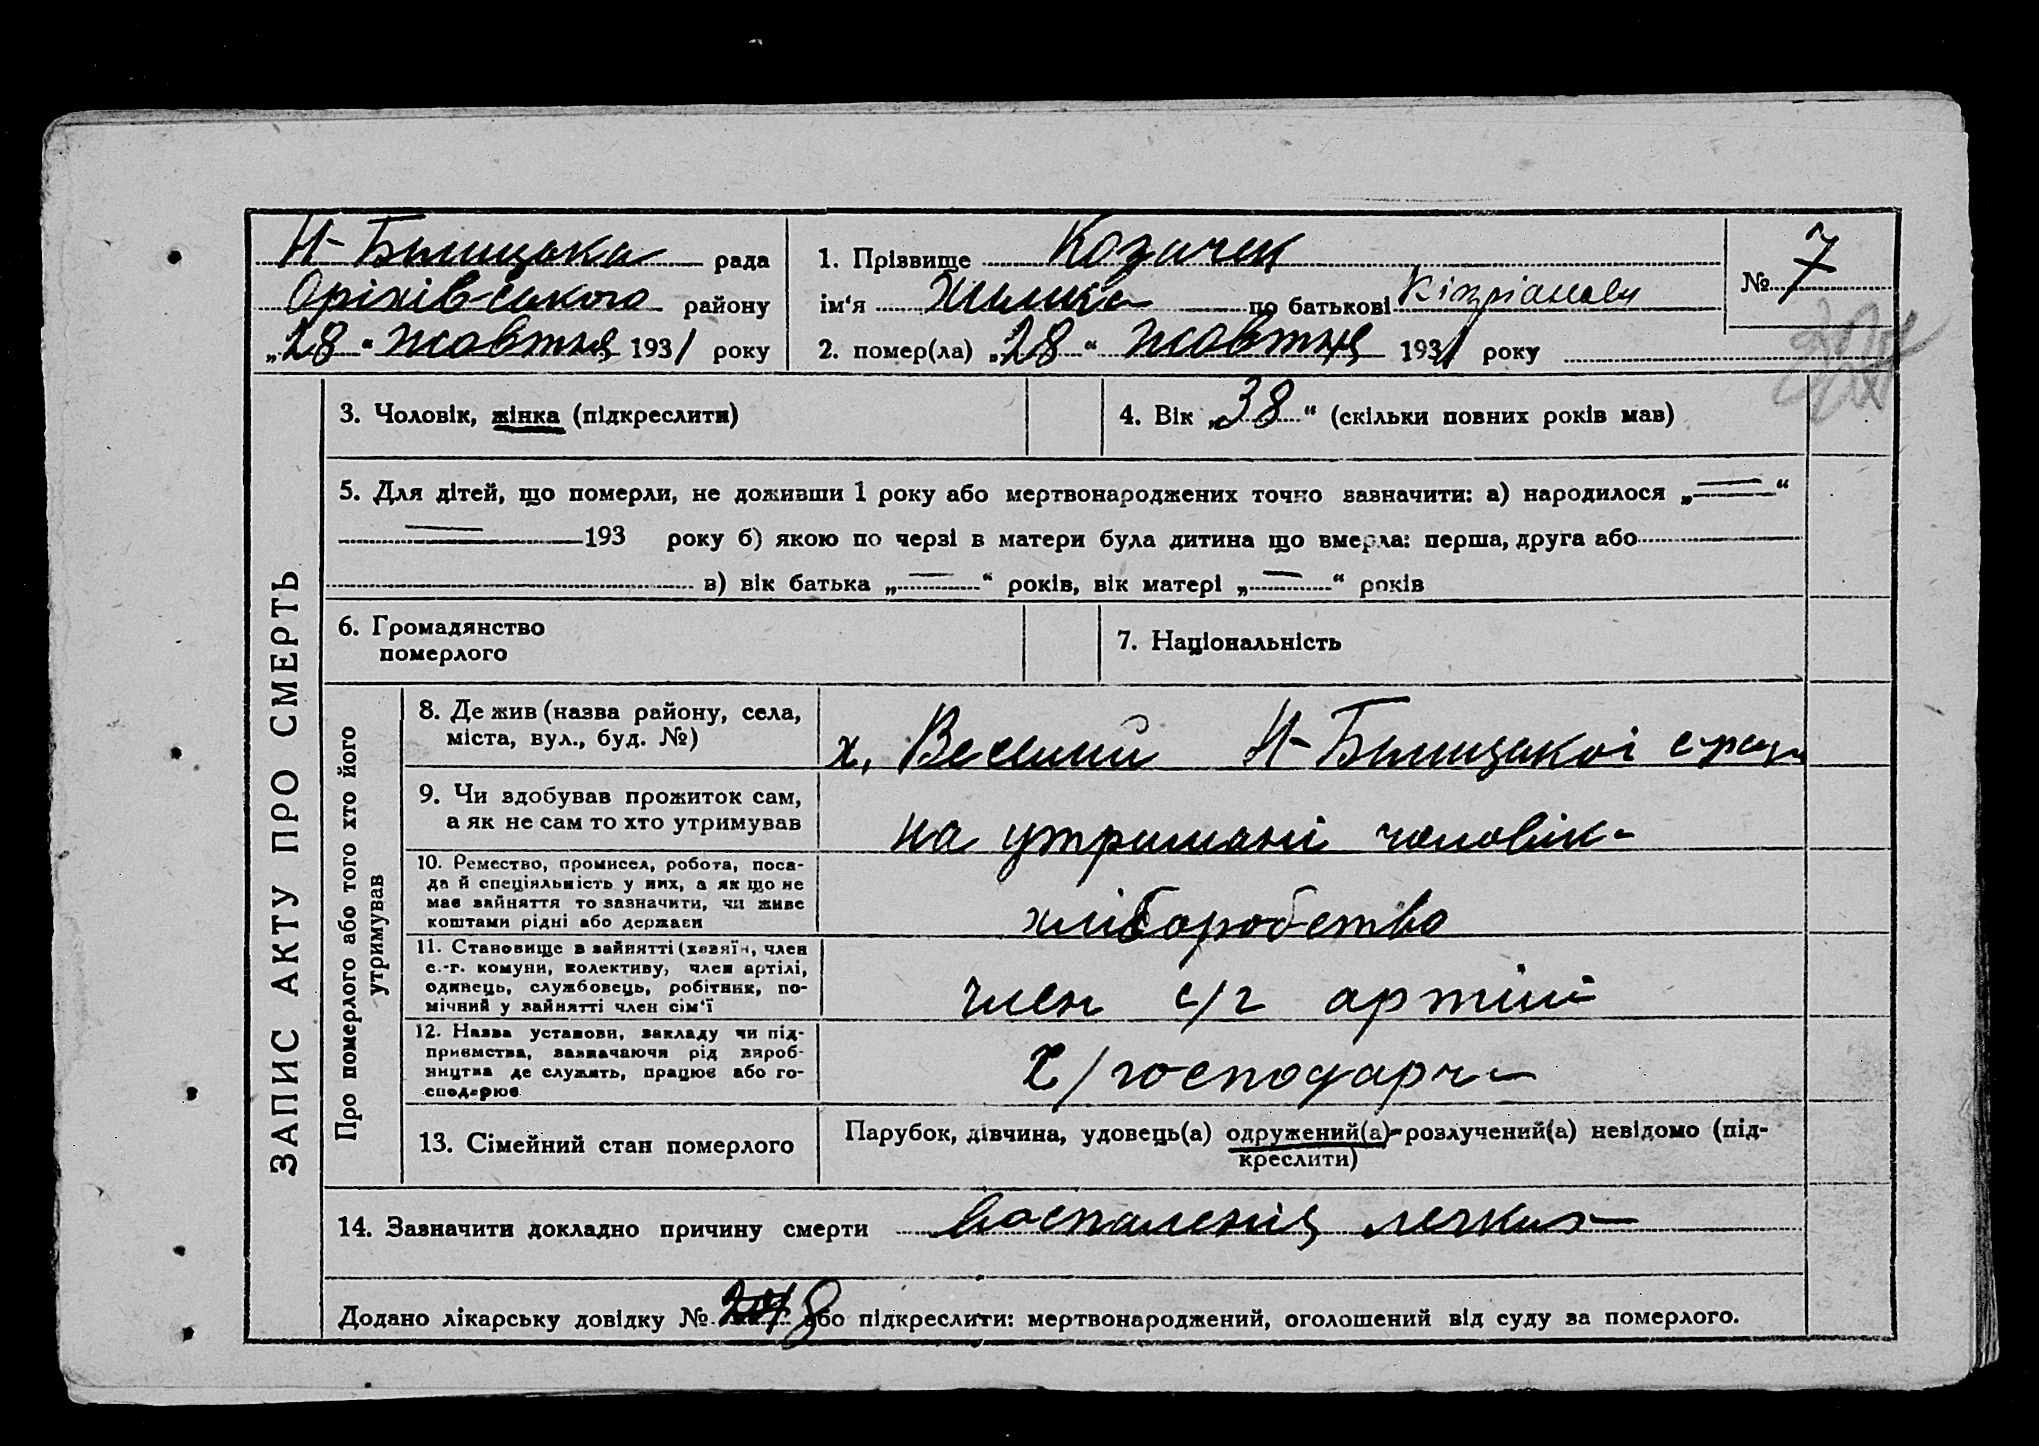 Н-Білицька рада
Оріхівського району
„28“ жовтня 1931 року
1. Прізвище Козачек
ім‘я по батькові Кіпріановн
2. помер(ла) „28“ жовтня 1931 року
№ 7
ЗАПИС АКТУ ПРО СМЕРТЬ
3. Чоловік, жінка (підкреслити)
4. Вік „38“ (скільки повних років мав)
5. Для дітей, що померли, не доживши 1 року або мертвонароджених точно зазначити: а) народилося „—“
— 193 року б) якою по черзі в матери була дитина що вмерла: перша, друга або
в) вік батька „—“ років, вік матері „—“ років
6. Громадянство
померлого
7. Національність
Про померлого або того хто його
утримував
8. Де жив (назва району, села,
міста, вул., буд. №)
х. Веселий Н-Білицької с/ради
9. Чи здобував прожиток сам,
а як не сам то хто утримував
на утримані чоловік
10. Ремество, промисел, робота, поса-
да й спеціяльність у них, а як що не
має зайняття то зазначити, чи живе
коштами рідні або держави
хліборобство
11. Становище в зайнятті (хазяїн, член
с.-г. комуни, колективу, член артілі,
одинець, службовець, робітник, по-
мічний у зайнятті член сім‘ї
член с/г артілі
12. Назва установи, закладу чи під-
приємства, зазначаючи рід вироб-
ництва де служить, працює або го-
сподарює
С/господарч
13. Сімейний стан померлого
Парубок, дівчина, удовець(а) одружений(а) розлучений(а) невідомо (під-
креслити)
14. Зазначити докладно причину смерти воспаленія легких
Додано лікарську довідку № 8 або підкреслити: мертвонароджений, оголошений від суду за померлого.